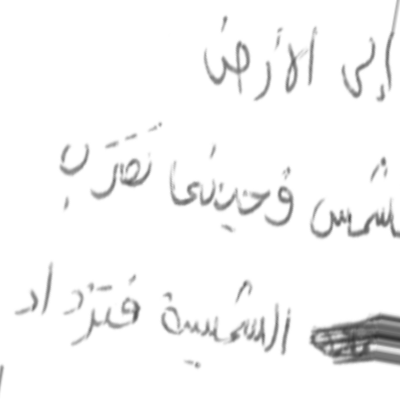 إلى الأرض
لشمس وحينما تضرب
الشمسية فتزداد